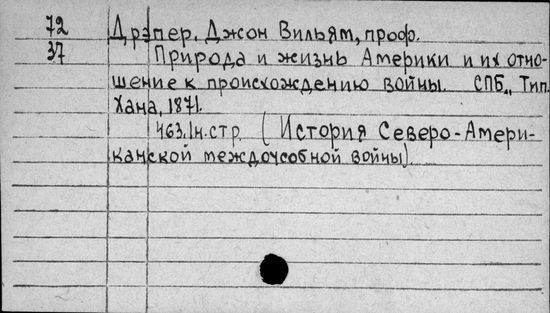 72 Дрэпер, Джон Вильям, проф.
37 Природа и жизнь Америки и их отно-
шение к происхождению войны. СПБ., Тип.
Хана, 1871.
463, 1н. стр. (История Северо-Амери-
канской междоусобной войны)